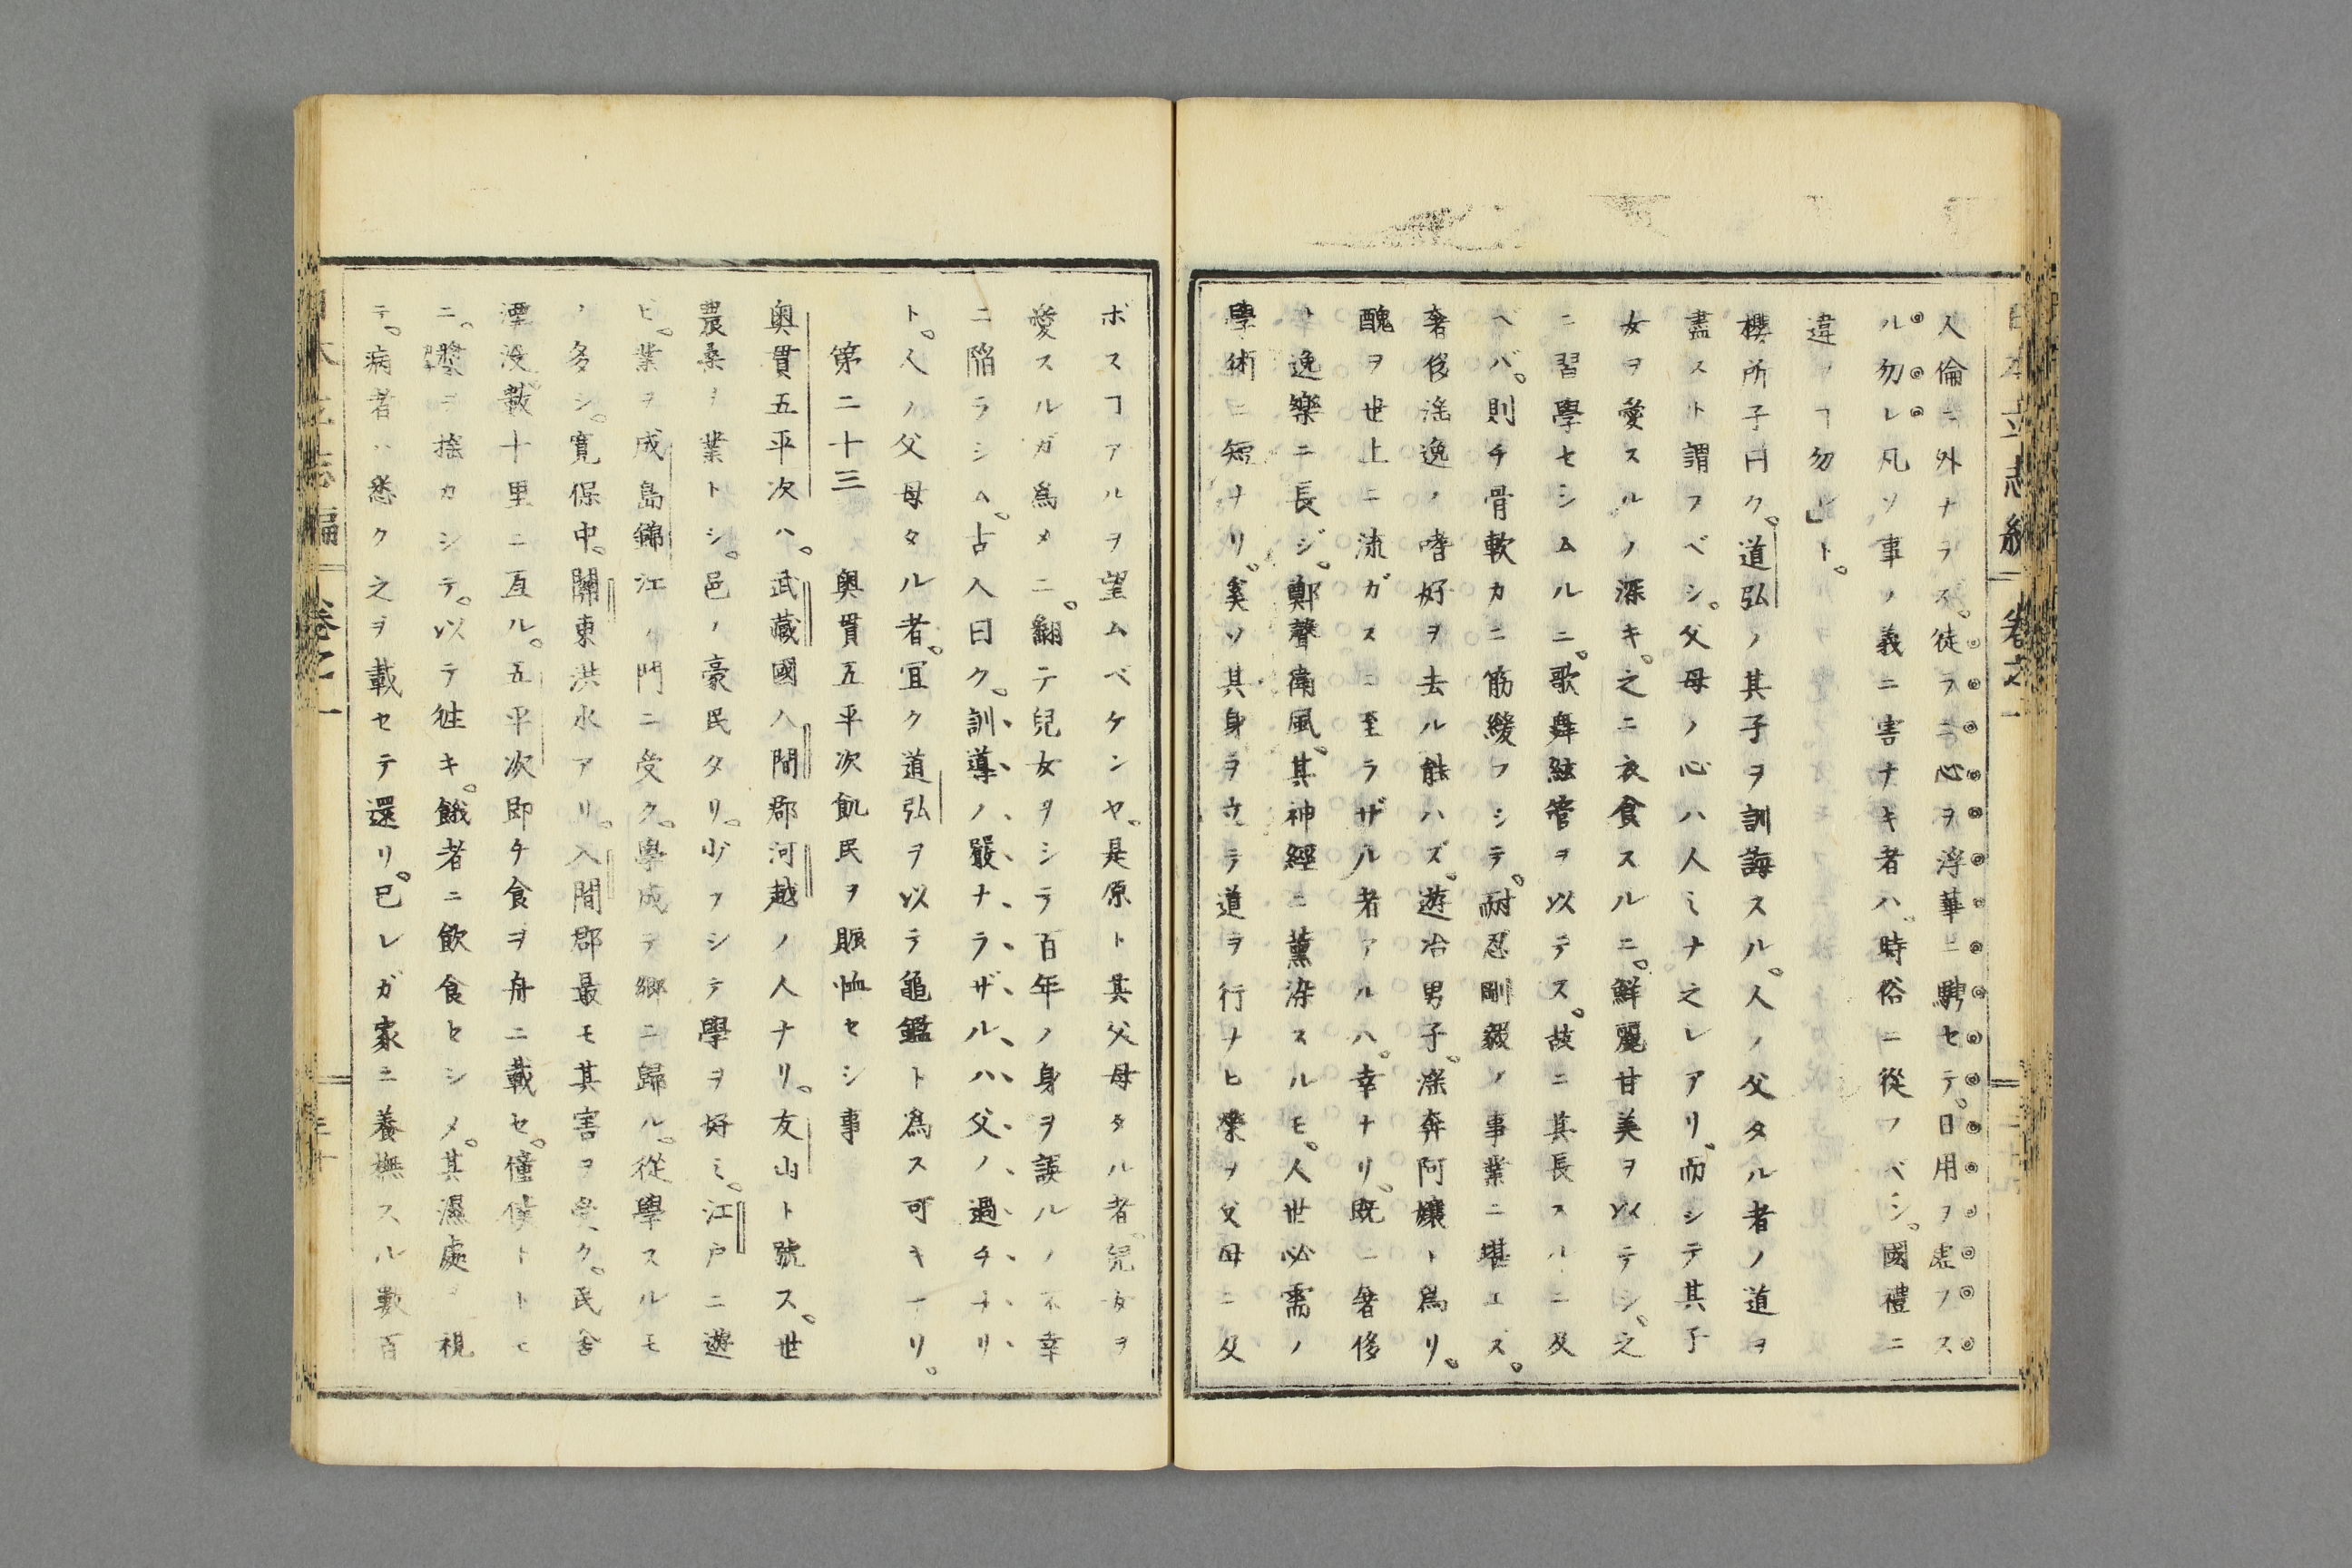 日本立志編 卷之一
人倫ニ外ナラズ。徒ラニ心ヲ浮華ニ騁セテ。日用ヲ虚フス
ル勿レ凡ソ事ノ義ニ害ナキ者ハ。時俗ニ從フベシ。國禮ニ
違フヿ勿レ」ト。
櫻所子曰ク。道弘ノ其子ヲ訓誨スル。人ノ父タル者ノ道ヲ
盡スト謂フベシ。父母ノ心ハ人ミナ之レアリ。而シテ其子
女ヲ愛スルノ深キ。之ニ衣食スルニ。鮮麗甘美ヲ以テシ。之
ニ習學セシムルニ。歌舞絃管ヲ以テス。故ニ其長スルニ及
ヘバ。則チ骨軟カニ筋緩フシテ。耐忍剛毅ノ事業ニ堪エス。
奢侈淫逸ノ嗜好ヲ去ル能ハズ。遊冶男子。淫奔阿孃ト爲リ。
醜ヲ世上ニ流ガスニ至ラザル者アルハ。幸ナリ。既ニ奢侈
ト逸樂ニ長ジ。鄭聲衛風。其神經ニ薰染スルモ。人世必需ノ
學術ニ短ナリ。奚ソ其身ヲ立テ道ヲ行ナヒ榮ヲ父母ニ及
ボスヿアルヲ望ムベケンヤ。是原ト其父母タル者。兒女ヲ
愛スルガ爲メニ。翻テ兒女ヲシテ百年ノ身ヲ誤ルノ不幸
ニ陷ラシム。古人曰ク。訓導ノ嚴ナラザルハ父ノ過チナリ
ト。人ノ父母タル者。宜ク道弘ヲ以テ龜鑑ト爲ス可キナリ。
第二十三 奥貫五平次飢民ヲ賑恤セシ事
奥貫五平次ハ。武藏國入間郡河越ノ人ナリ。友山ト號ス。世
農桑ヲ業トシ。邑ノ豪民タリ。少フシテ學ヲ好ミ。江戸ニ遊
ビ。業ヲ成島錦江ノ門ニ受ク。學成テ郷ニ歸ル。從學スルモ
ノ多シ。寛保中。關東洪水アリ。入間郡最モ其害ヲ受ク。民舍
湮没數十里ニ亙ル。五平次即チ食ヲ舟ニ載セ。僮僕トトモ
ニ。槳ヲ搖カシテ。以テ徃キ。餓者ニ飲食セシメ。其濕處ヲ視
テ。病者ハ悉ク之ヲ載セテ還リ。已レガ家ニ養撫スル數百
日本立志編 卷之一 三十